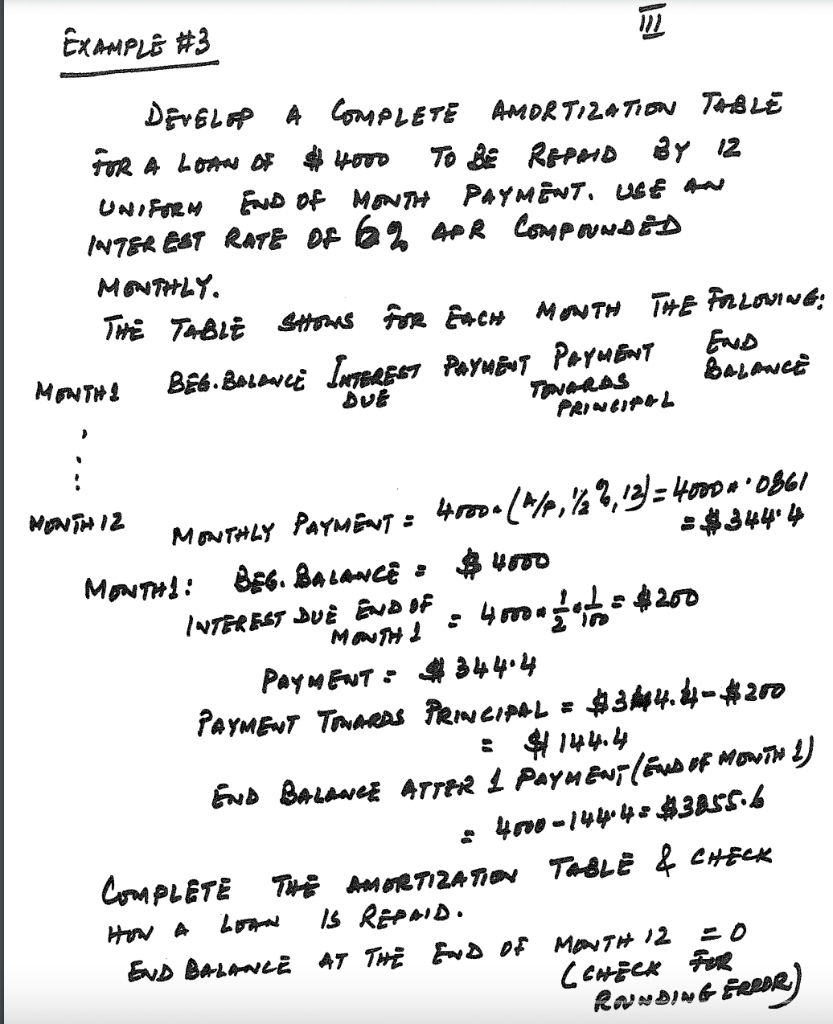 III
EXAMPLE #3
DEVELOP A COMPLETE AMORTIZATION TABLE
FOR A LOAN OF $4000 TO BE REPAID BY 12
UNIFORM END OF MONTH PAYMENT. USE AN
INTEREST RATE OF 6% APR COMPOUNDED
MONTHLY.
THE TABLE SHOWS FOR EACH MONTH THE FOLLOWING:
MONTH 1 BEG. BALANCE INTEREST DUE PAYMENT PAYMENT TOWARDS PRINCIPAL END BALANCE
⋮
MONTH 12 MONTHLY PAYMENT = 4000 * (A/P, ½%, 12) = 4000 * .0861
= $344.4
MONTH 1: BEG. BALANCE = $4000
INTEREST DUE END OF MONTH 1 = 4000 * 1/2 * 1/100 = $200
PAYMENT = $344.4
PAYMENT TOWARDS PRINCIPAL = $344.4 - $200
= $144.4
END BALANCE ATTER 1 PAYMENT (END OF MONTH 1)
= 4000 - 144.4 = $3855.6
COMPLETE THE AMORTIZATION TABLE & CHECK
HOW A LOAN IS REPAID.
END BALANCE AT THE END OF MONTH 12 = 0
(CHECK FOR
ROUNDING ERROR)